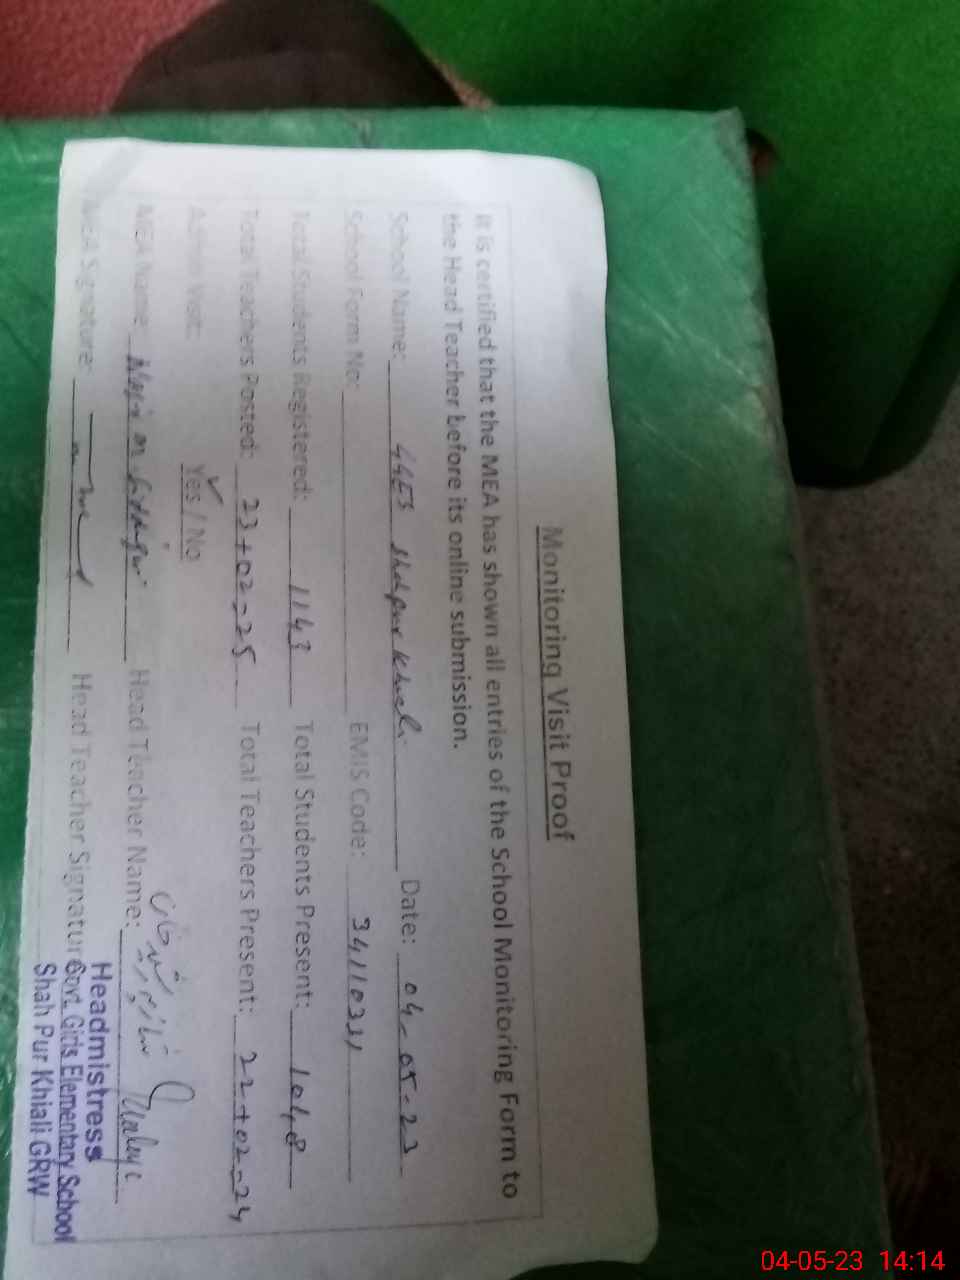 Monitoring Visit Proof
It is certified that the MEA has shown all entries of the School Monitoring Form to
the Head Teacher before its online submission.
School Name: GGES Shahpur Khiali Date: 04-05-23
School Form No: EMIS Code:
Total Students Registered: 1143 Total Students Present: 1048
Total Teachers Posted: 23+02=25 Total Teachers Present: 22+02=24
Admin Visit: Yes / No
MEA Name: Head Teacher Name:
MEA Signature: Head Teacher Signature:
Headmistress
Govt. Girls Elementary School
Shah Pur Khiali GRW
04-05-23 14:14